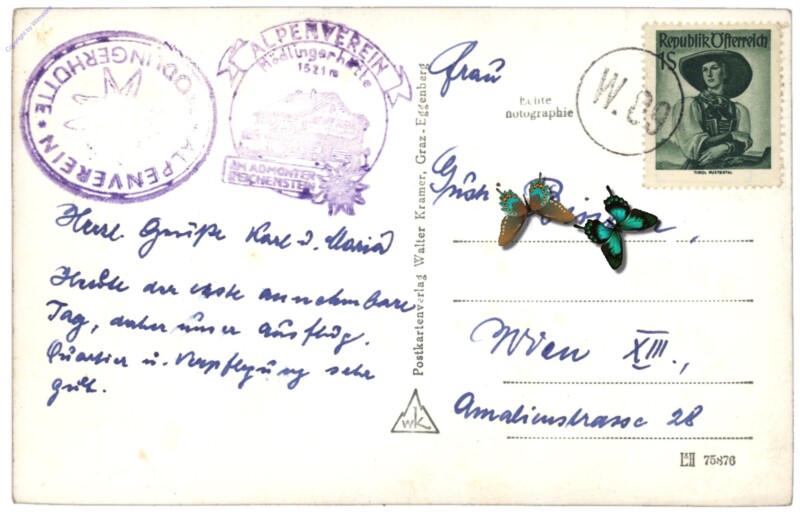 Copyright by Wienerzeit
ALPENVEREIN
MÖDLINGERHÜTTE
ALPENVEREIN
Mödlingerhütte
1521m
IM ADMONTER
REICHENSTEIN
Herzl. Grüße Karl u. Maria
Heute der erste annehmbare
Tag, daher unser Ausflug.
Quartier u. Verpflegung sehr
gut.
Postkartenverlag Walter Kramer, Graz-Eggenberg
WK
Frau
Echte
hotographie
Republik Österreich
1S
TIROL PUSTERTAL
Wien XIII.,
Amalienstrasse 28
75876